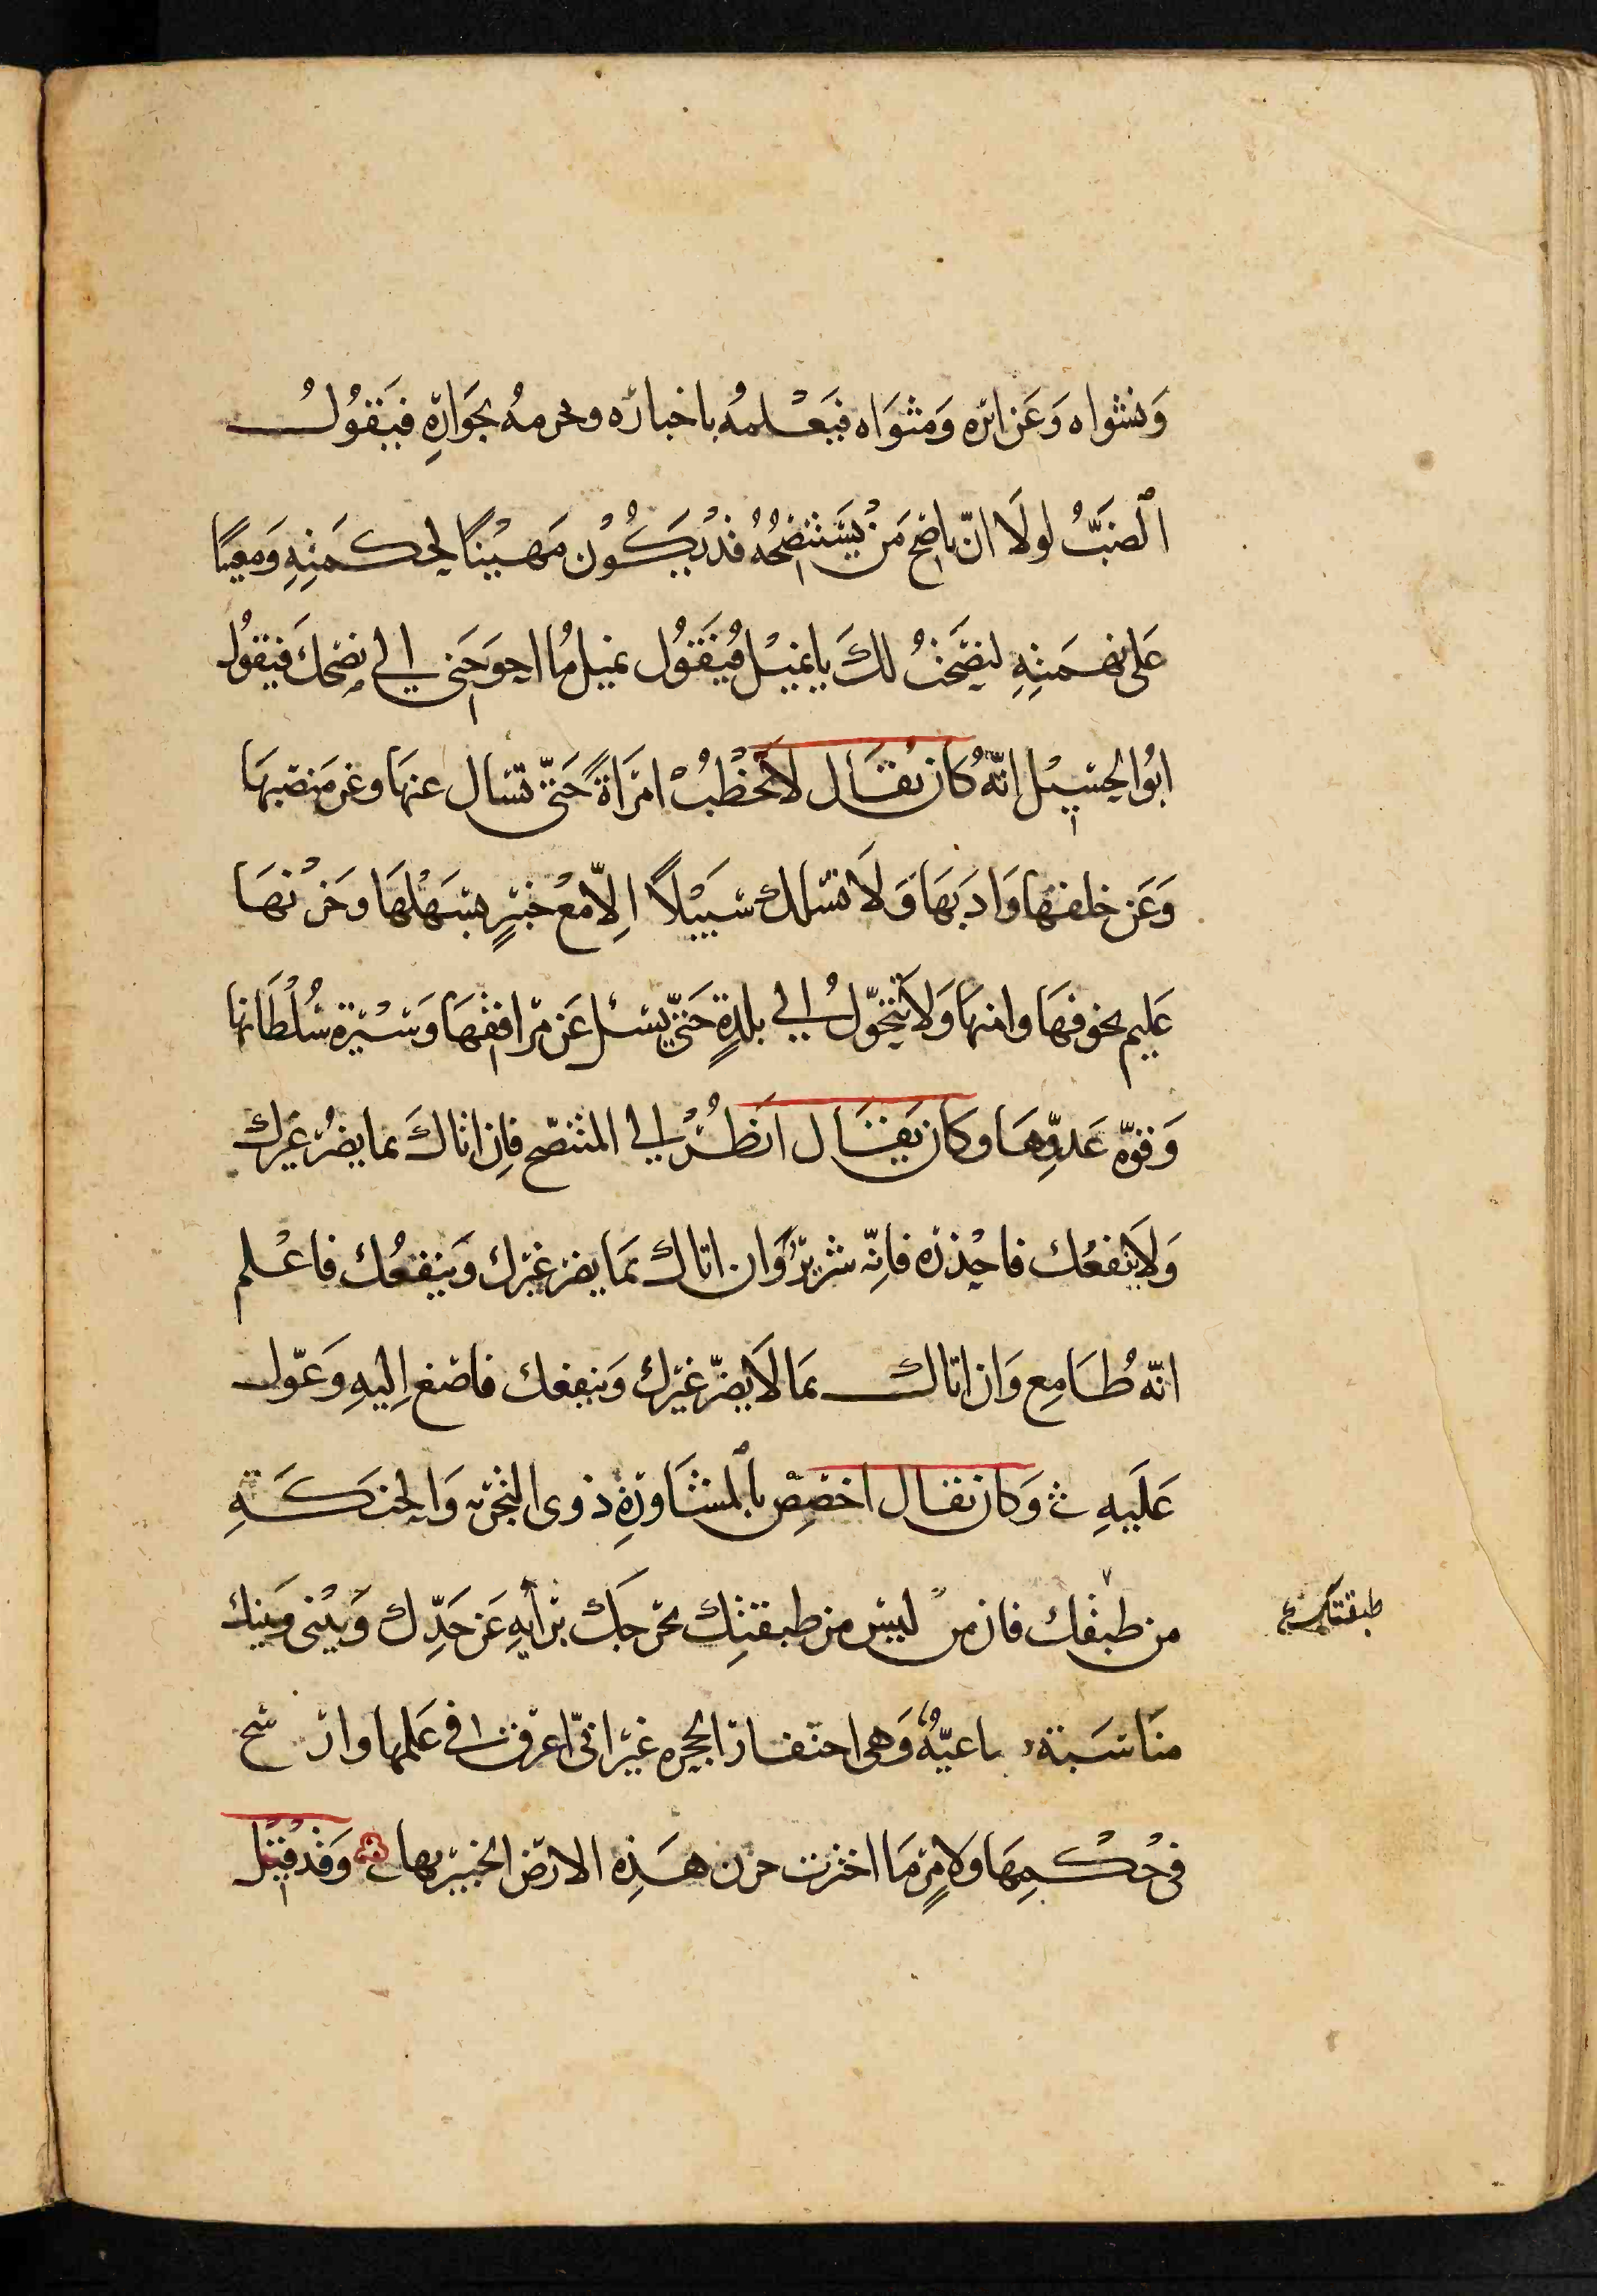 وَنشواه وَعَن اثره وَمثوَاه فيَعْلمهُ باخباره ويحرمهُ بجوَارِهِ فيَقوُلُ
الضبُّ لولَا انّ ناصح مَنْ يَسْتنصِحُهُ قدْ يَكُوْن مَهيْنًا لحِكمَتِهِ وَمعِينًا
عَلى نهمَتِهِ لنصَحْتُ لكَ يا نميْل فيَقوُل نميل مُا احوَجَنى الى نصْحكَ فيَقوُل
ابُوا الحسيْل انّهُ كان يقال لاَ تخطُبْ امرَاةً حَتىّ تسال عنهَا وعَن مَنصبهَا
وَعَن خلقهَا وَادَبهَا وَلَا تسلك سَبيْلاً اِلاّ معْ خبيْرٍ بسَهْلهَا وحَزْنهَا
عَليم بخوفهَا وامنهَا وَلاَ تتحَوّلُ الى بلدةٍ حَتىّ يسئل عَن مرَافقهَا وَسيْرة سُلْطَانها
وَقوّة عَدوِّهَا وكان يقال انظُرْ الى المتنصّح فاِن اتاكَ بما يضُر غيَرك
وَلاَ ينفعُك فاحْذره فانّه شريرٌ وَان اتاك بمَا يضر غيْرك وَينفعُك فاعْلم
انّه طُامِع وَان اتاك بمَا لاَ يضرّ غيْرك وَينفعك فاصْغ اِليهِ وَعَوّل
عَلَيهِ وَكان يقال اخصِصْ بالمشَاورَةِ ذوى التجربه وَالحنكَةِ
من طبقك فان منْ ليسْ من طبقتِك يخرجك برَأيهِ عَن حَدِّك وَبيْنى وَبينك
طبقتك
منَاسَبَة وَهى احتفار الجحره غيْر انىّ اعرَق في عَلمها وارسخ
فى حُكْمِهَا ولامْرٍ مَا اخترت من هذِه الارض الخبير بها وَقدْ قيْل